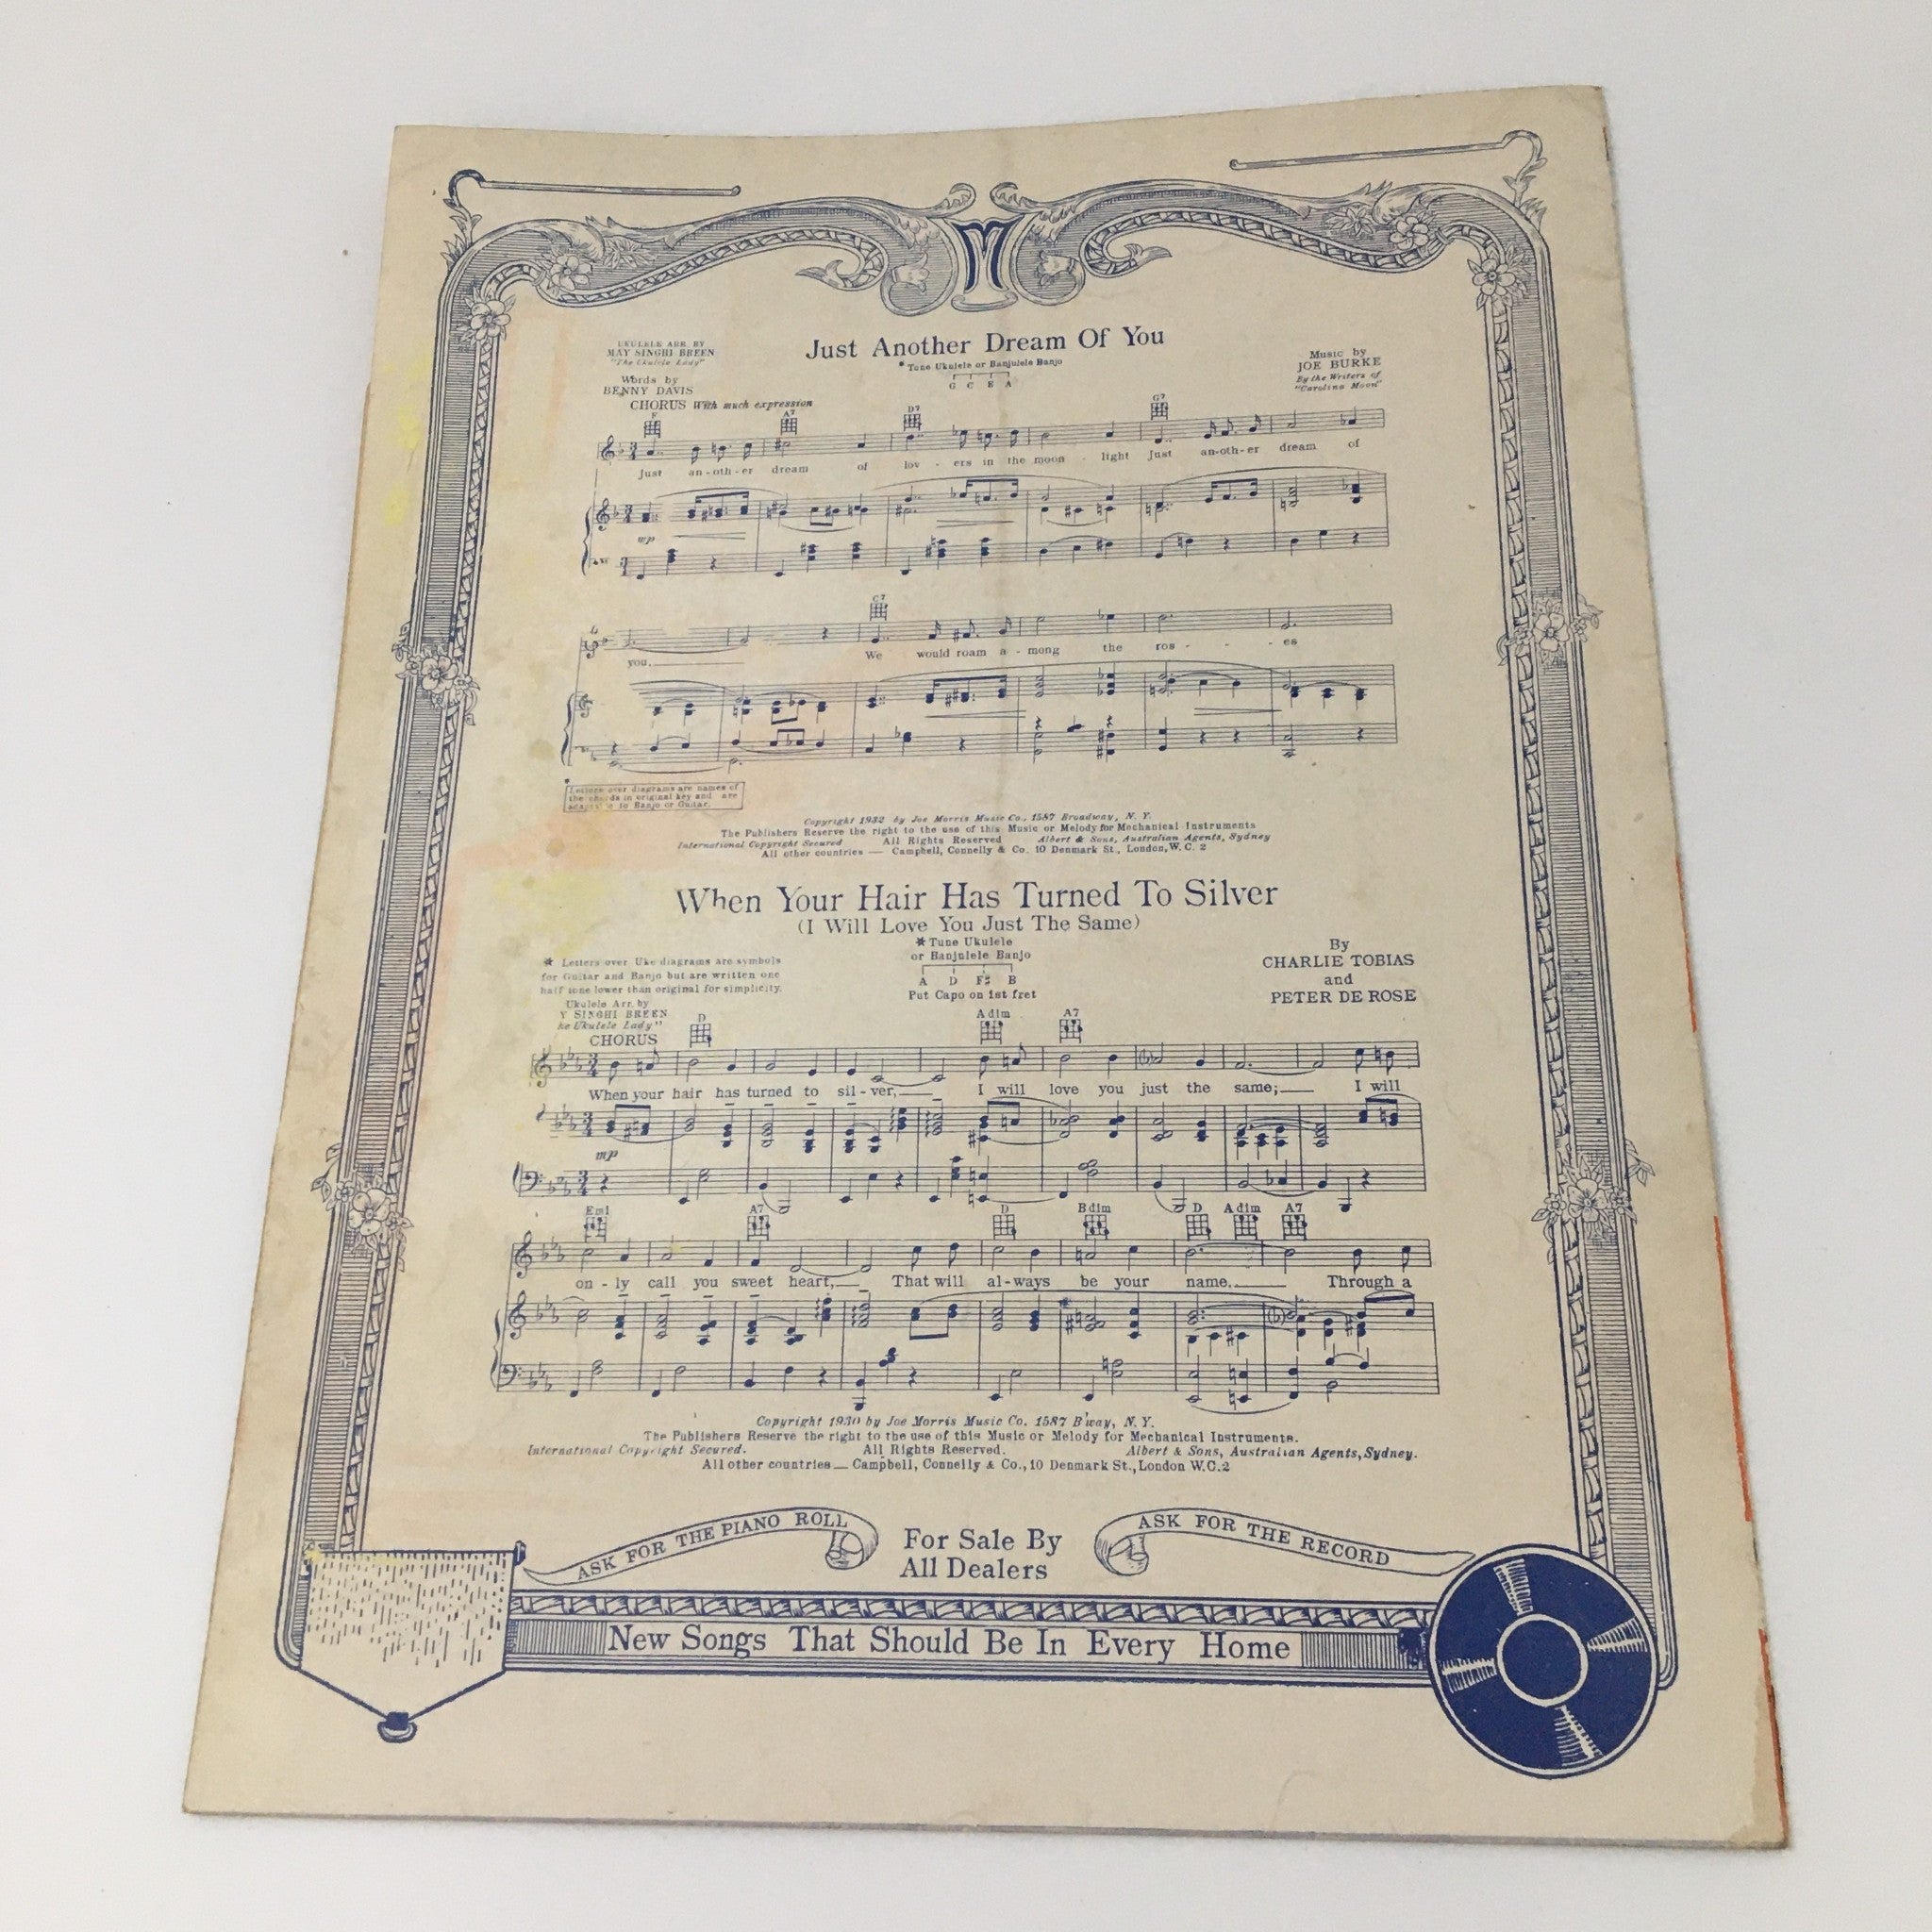 M
Just Another Dream Of You
UKULELE ARR. BY
MAY SINGHI BREEN
"The Ukulele Lady"
* Tune Ukulele or Banjulele Banjo
G C E A
Words by
BENNY DAVIS
Music by
JOE BURKE
By the Writers of
"Carolina Moon"
CHORUS With much expression
F A7 D7 G7
Just an-oth-er dream of lov - ers in the moon - light Just an-oth-er dream of
mp
C7
you, We would roam a - mong the ros - - - es
* Letters over diagrams are names of
the chords in original key and are
to Banjo or Guitar.
Copyright 1932 by Joe Morris Music Co., 1587 Broadway, N. Y.
The Publishers Reserve the right to the use of this Music or Melody for Mechanical Instruments
International Copyright Secured All Rights Reserved Albert & Sons, Australian Agents, Sydney
All other countries — Campbell, Connelly & Co. 10 Denmark St., London, W. C. 2
When Your Hair Has Turned To Silver
(I Will Love You Just The Same)
* Letters over Uke diagrams are symbols
for Guitar and Banjo but are written one
half tone lower than original for simplicity.
* Tune Ukulele
or Banjulele Banjo
A D F♯ B
Put Capo on 1st fret
By
CHARLIE TOBIAS
and
PETER DE ROSE
Ukulele Arr. by
Y SINGHI BREEN
he Ukulele Lady"
CHORUS
D Adim A7
When your hair has turned to sil - ver, I will love you just the same; I will
mp
Emi A7 D Bdim D Adim A7
on - ly call you sweet heart, That will al-ways be your name. Through a
Copyright 1930 by Joe Morris Music Co. 1587 B'way, N. Y.
The Publishers Reserve the right to the use of this Music or Melody for Mechanical Instruments.
International Copyright Secured. All Rights Reserved. Albert & Sons, Australian Agents, Sydney.
All other countries — Campbell, Connelly & Co., 10 Denmark St., London W.C.2
ASK FOR THE PIANO ROLL
For Sale By
All Dealers
ASK FOR THE RECORD
New Songs That Should Be In Every Home